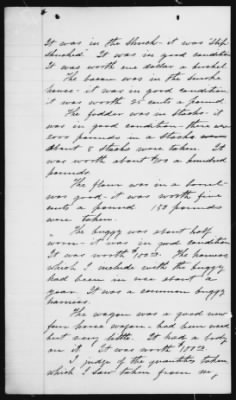 It was in the Shuck - it was "Slip
Shucked" It was in good condition
It was worth one dollar a bushel
The bacon was in the smoke
house - it was in good condition
it was worth 25 cents a pound
The fodder was in stacks - it
was in good condition - there
pounds in a stack
about 8 stacks were taken. It
was worth about two a hundred
pounds.
The flour was in a barrel -
was good - it was worth five
cents a pound 150 pounds
were taken.
The buggy was about half
worn - it was in good condition
It was worth The harness
which I include with the buggy
had been in use about a
year. It was a common buggy
harness.
The wagon was a good new
four horse wagon - had been used
but very little. It had a body
on it. It was worth
I judge of the quantities taken
which I saw taken from me,